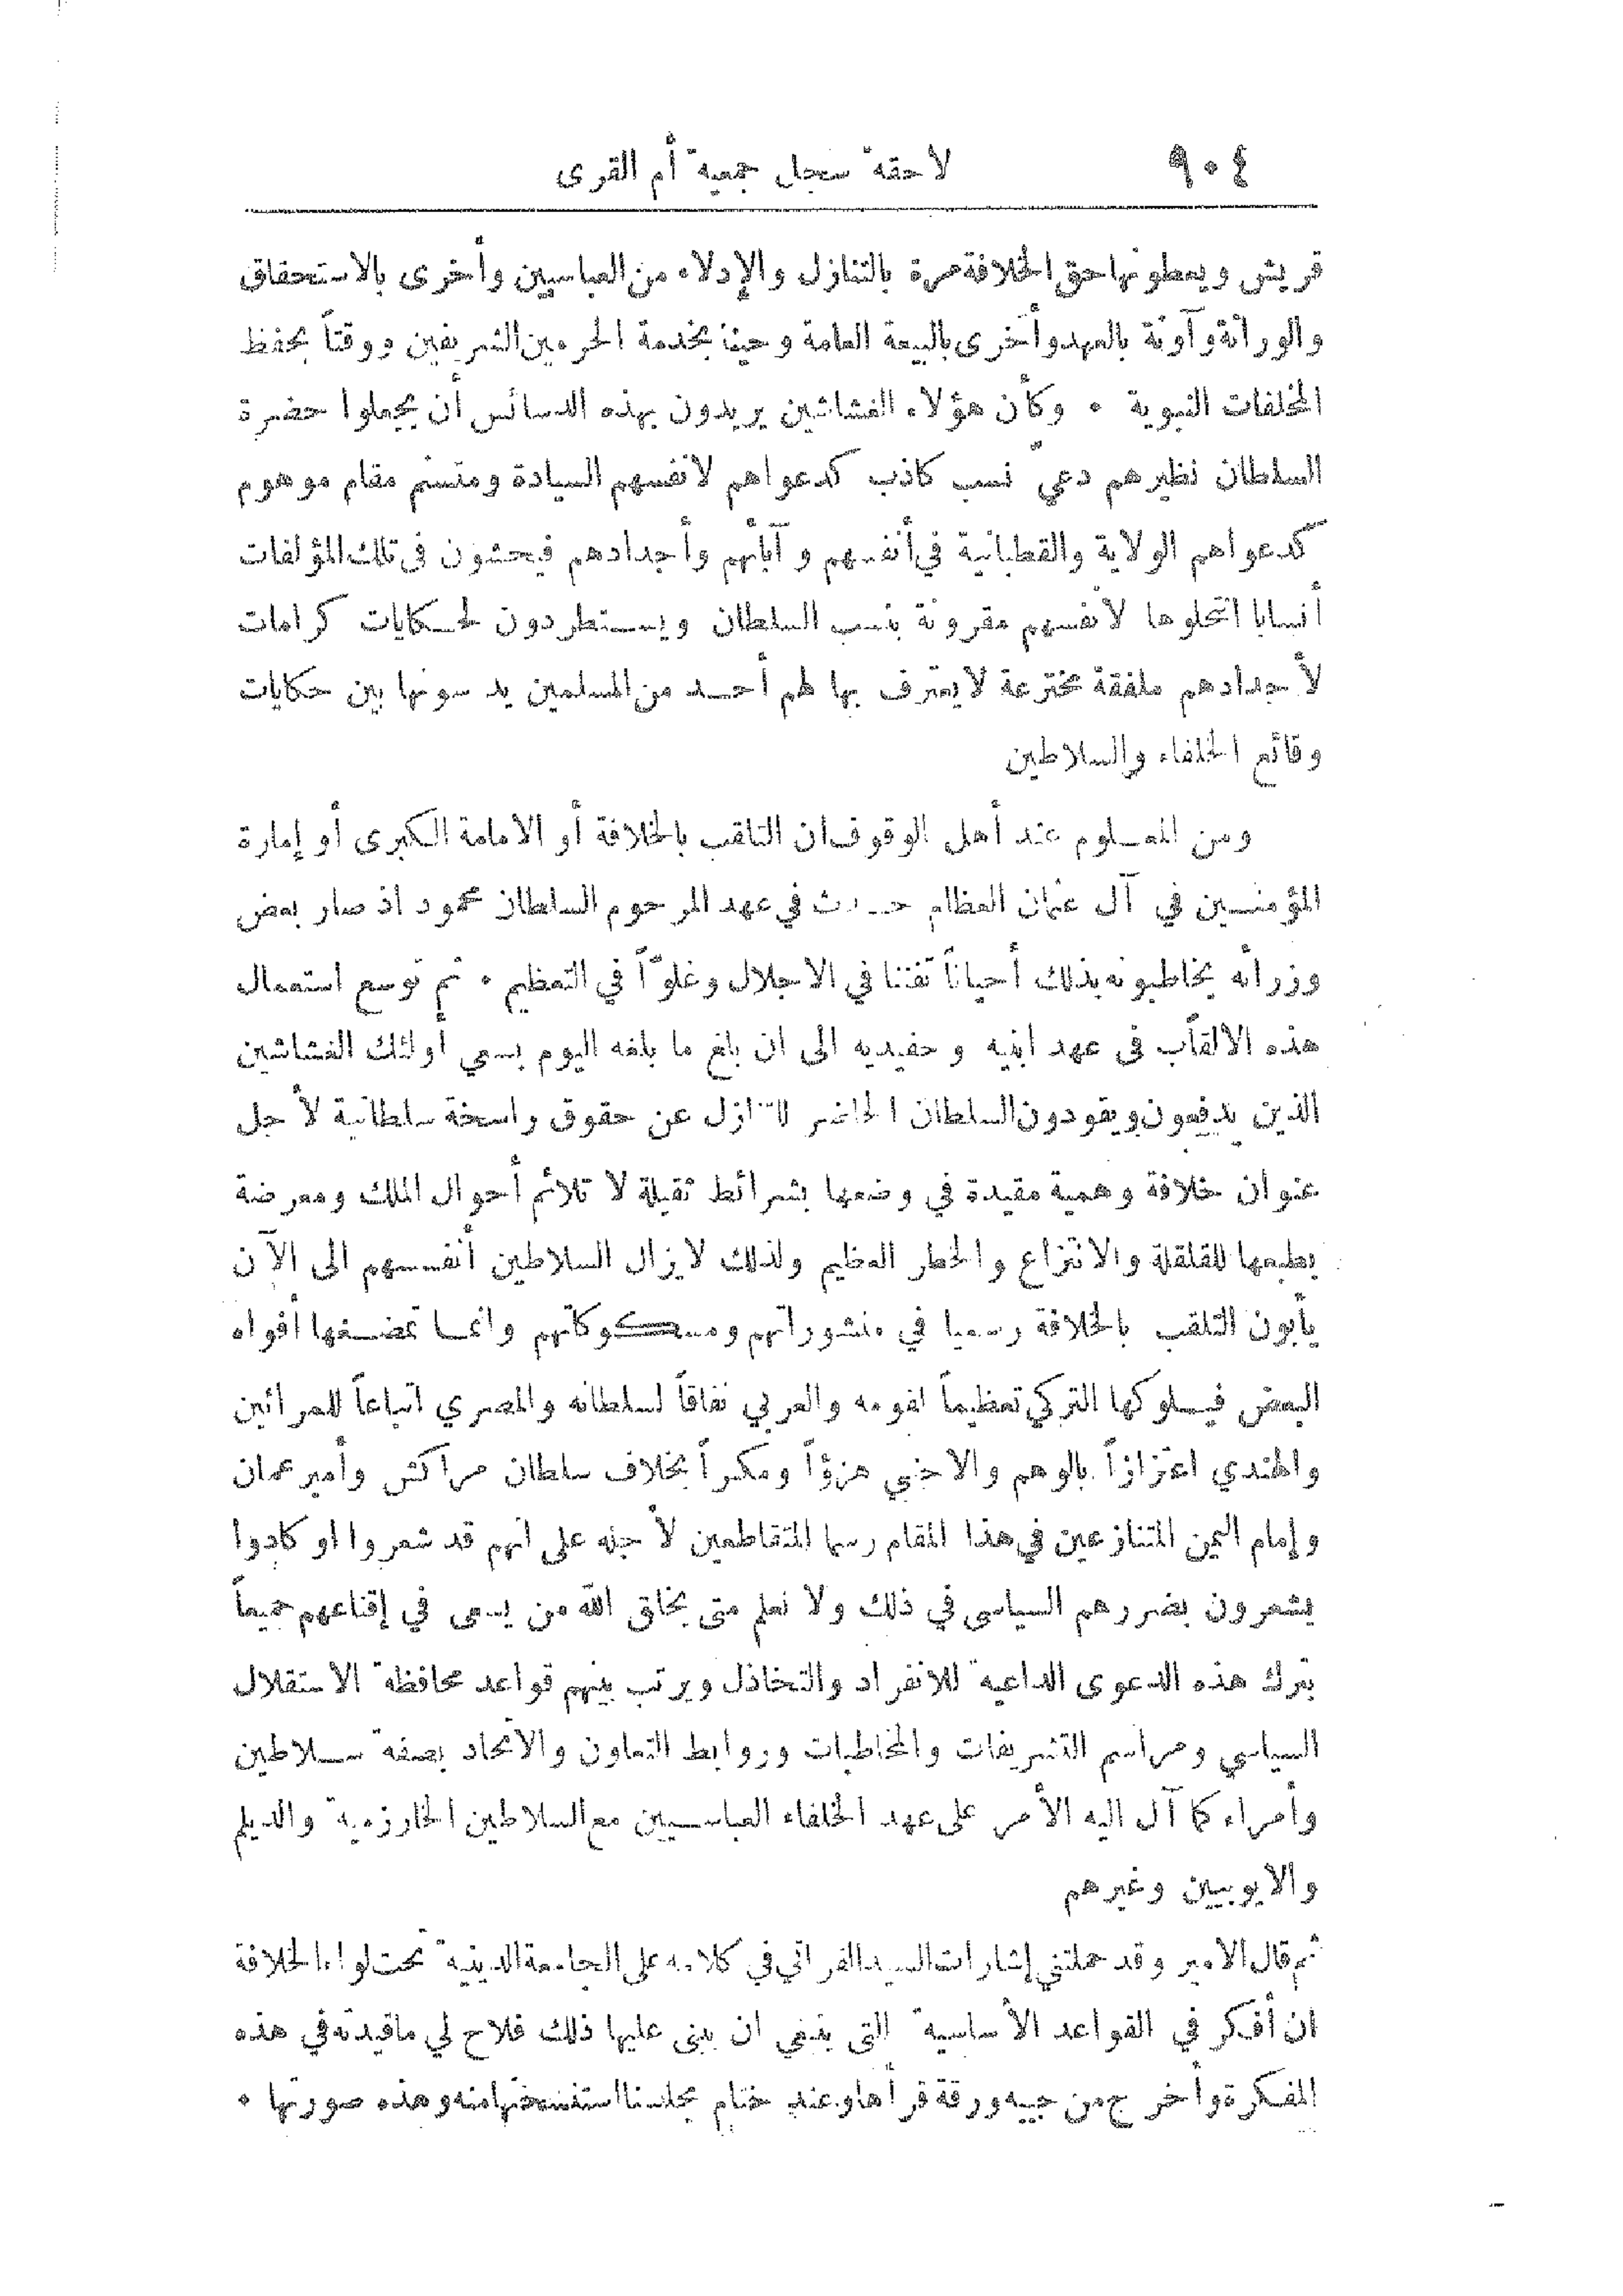 ٩٠٤ لاحقة سجل جمعية أم القرى
قريش ويعطونها حق الخلافة مرة بالتنازل والإدلاء من العباسيين وأخرى بالاستحقاق
والوراثة وآونة بالعهد وأخرى بالبيعة العامة وحيناً بخدمة الحرمين الشريفين ووقتاً بحفظ
المخلفات النبوية ٠ وكأن هؤلاء الغشاشين يريدون بهذه الدسائس أن يجعلوا حضرة
السلطان نظيرهم دعيّ نسب كاذب كدعواهم لانفسهم السيادة ومتسنم مقام موهوم
كدعواهم الولاية والقطبانية في أنفسهم وآبائهم وأجدادهم فيحشون في تلك المؤلفات
أنسابا انتحلوها لأنفسهم مقرونة بنسب السلطان ويستطردون لحكايات كرامات
لأجدادهم ملفقة مخترعة لايعترف بها لهم أحد من المسلمين يدسونها بين حكايات
وقائع الخلفاء والسلاطين
ومن المعلوم عند أهل الوقوف ان التلقب بالخلافة أو الامامة الكبرى أو إمارة
المؤمنين في آل عثمان العظام حدث في عهد المرحوم السلطان محمود اذ صار بعض
وزرائه يخاطبونه بذلك أحياناً تفننا في الاجلال وغلوّاً في التعظيم ٠ ثم توسع استعمال
هذه الالقاب في عهد ابنيه وحفيديه الى ان بلغ ما بلغه اليوم بسعي أولئك الغشاشين
الذين يدفعون ويقودون السلطان الحاضر للتنازل عن حقوق راسخة سلطانية لأجل
عنوان خلافة وهمية مقيدة في وضعها بشرائط ثقيلة لا تلائم أحوال الملك ومعرضة
بطبعها للقلقلة والانتزاع والخطر العظيم ولذلك لايزال السلاطين أنفسهم الى الآن
يأبون التلقب بالخلافة رسميا في منشوراتهم ومسكوكاتهم وانما تمضغها أفواه
البعض فيلوكها التركي تعظيماً لقومه والعربي نفاقاً لسلطانه والمصري اتباعاً للمرائين
والهندي اعتزازاً بالوهم والاجنبي هزؤاً ومكراً بخلاف سلطان مراكش وأمير عمان
وإمام اليمن المتنازعين في هذا المقام رسما المتقاطعين لأجله على انهم قد شعروا او كادوا
يشعرون بضررهم السياسي في ذلك ولا نعلم متى يخلق الله من يسعى في إقناعهم جميعاً
بترك هذه الدعوى الداعية للانفراد والتخاذل ويرتب بينهم قواعد محافظة الاستقلال
السياسي ومراسم التشريفات والمخاطبات وروابط التعاون والاتحاد بصفة سلاطين
وأمراء كما آل اليه الأمر على عهد الخلفاء العباسيين مع السلاطين الخارزمية والديلم
والايوبيين وغيرهم
ثم قال الامير وقد حملتني إشارات السيد الفراتي في كلامه على الجامعة الدينية تحت لواء الخلافة
ان أفكر في القواعد الأساسية التي ينبغي ان يبنى عليها ذلك فلاح لي ماقيدته في هذه
المفكرة وأخرج من جيبه ورقة قرأها وعند ختام مجلسنا استنسختها منه وهذه صورتها ٠